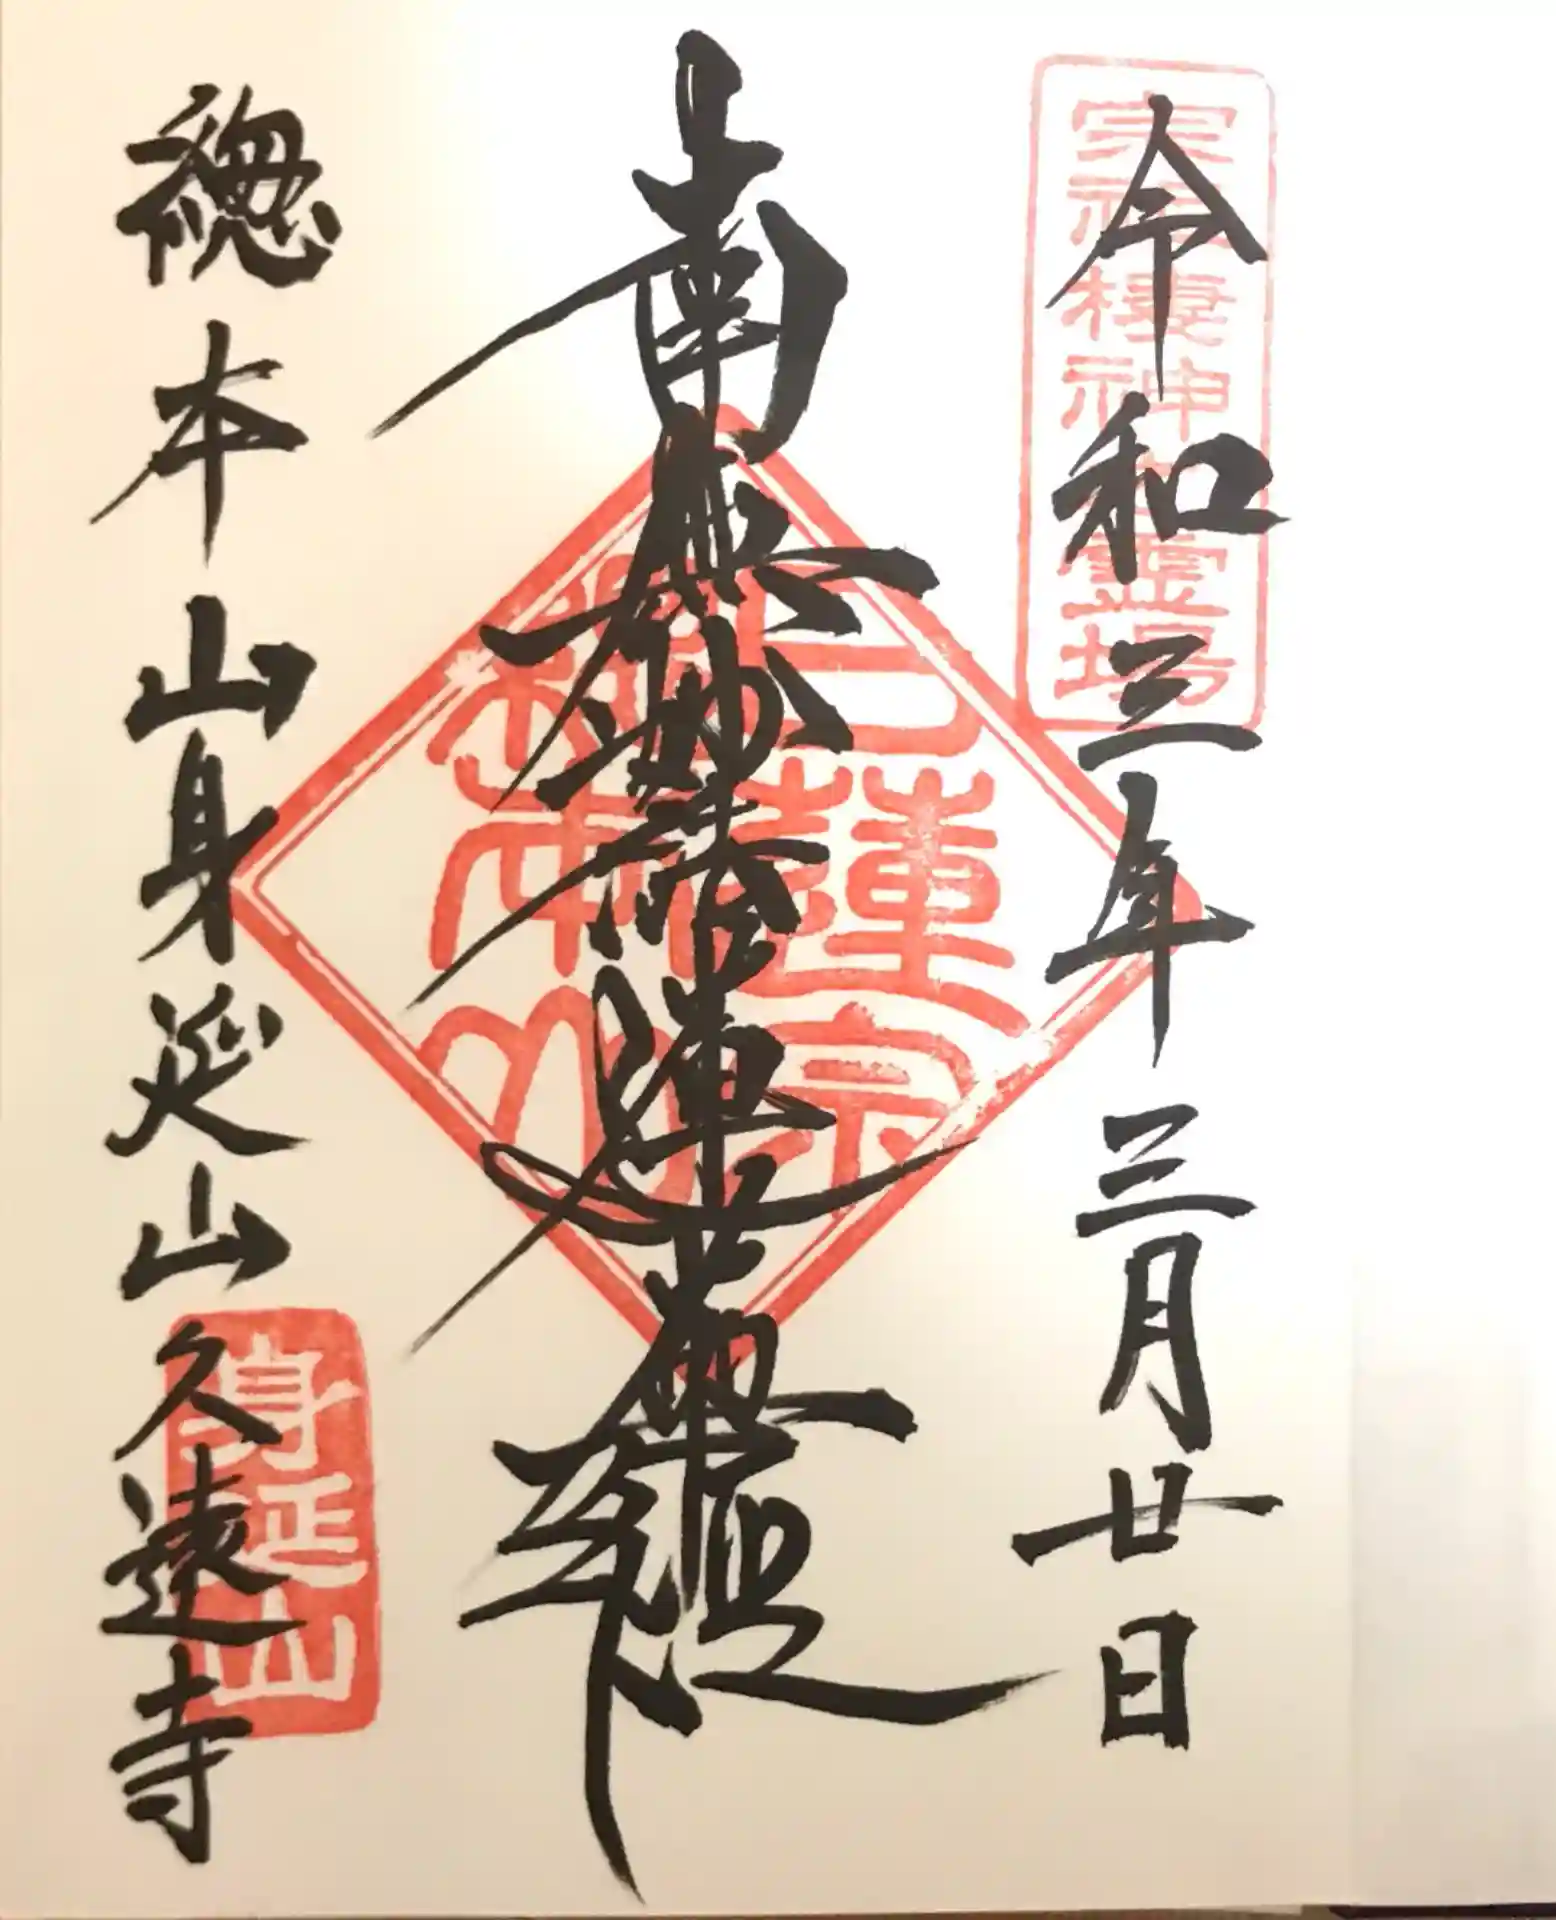 令和三年三月廿日
宗祖棲神之霊場
南無妙法蓮華経
日蓮宗
総本山
総本山身延山久遠寺
身延山